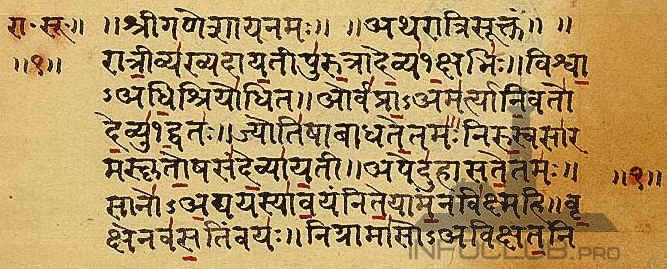 रा॰ सू॰ ॥ ॥ श्रीगणेशायनमः ॥ ॥ अथरात्रिसूक्तं ॥ ॥
॥१॥ रात्रीव्यख्यदायतीपुरुत्रादेव्य१क्षभिः ॥ विश्वा
ऽअधिश्रियोधित ॥ ओर्वप्राऽअमर्त्यानिवतो
देव्यु१द्वतः ॥ ज्योतिषाबाधतेतमः निरुस्वसार
मस्कृतोषसंदेव्यायती ॥ अपेदुहासतेतमः ॥
सानोऽअद्ययस्यावयंनितेयामन्नविक्ष्महि ॥ वृ ॥१॥
क्षेनवसतिंवयः ॥ निग्रामासोऽअविक्षतनि
INFOCLUB.PRO